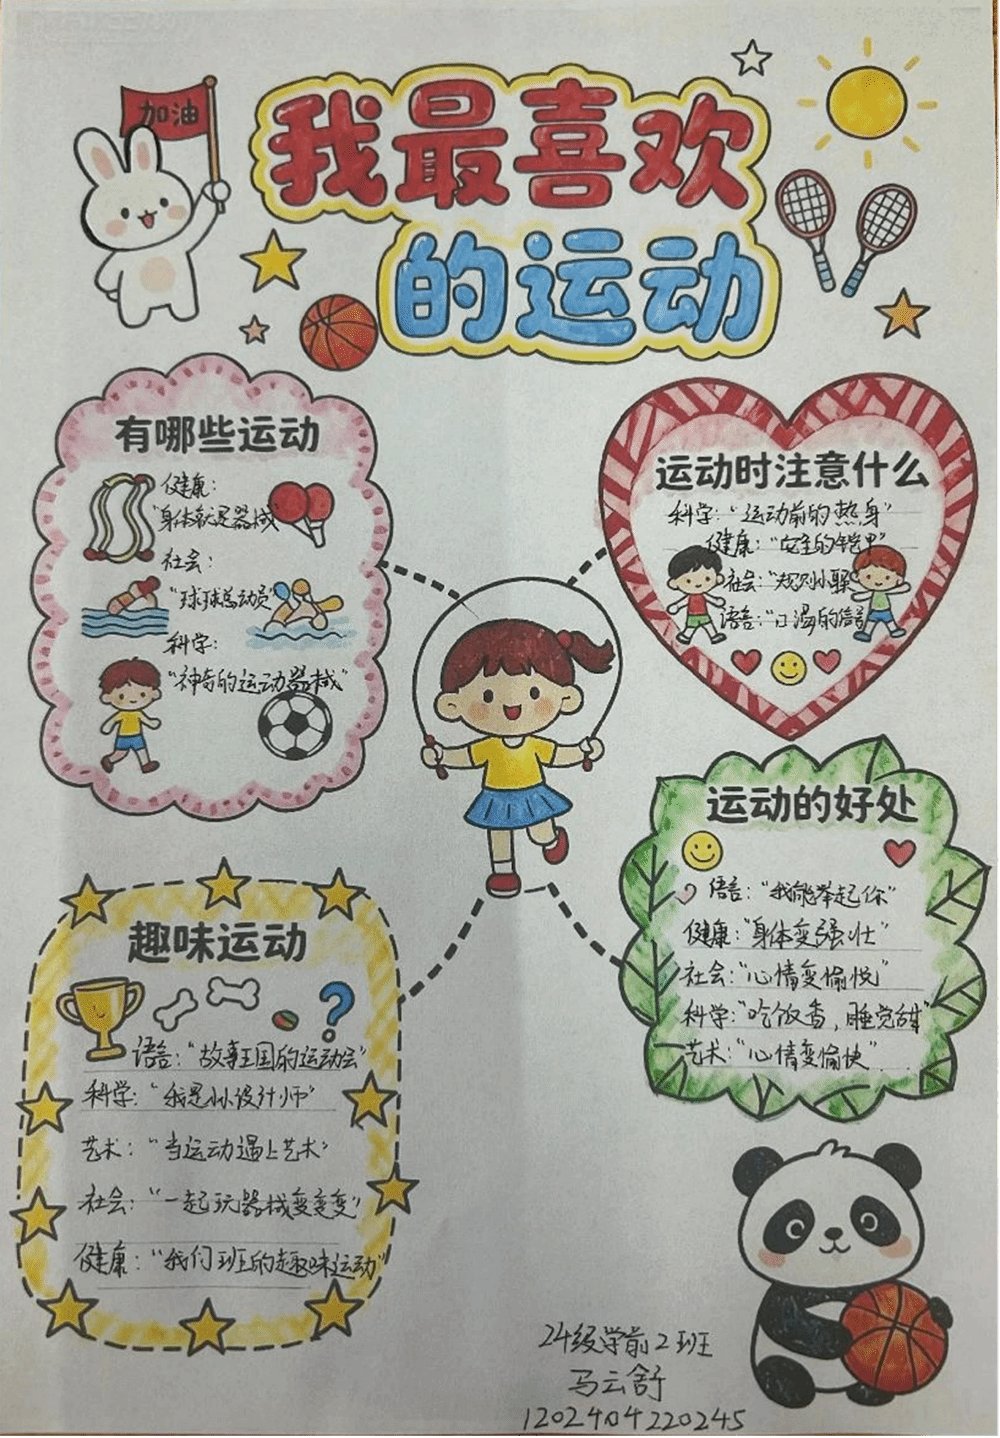 加油
我最喜欢
的运动
有哪些运动
健康:
"身体就是器械"
社会:
"球球总动员"
科学:
"神奇的运动器械"
运动时注意什么
科学:"运动前的热身"
健康:"安全的铠甲"
社会:"规则小
语言:"口渴的信
运动的好处
语言:"我能举起你"
健康:"身体变强壮"
社会:"心情变愉悦"
科学:"吃饭香,睡觉甜"
艺术:"心情变愉快"
趣味运动
语言:"故事王国的运动会"
科学:"我是小小设计师"
艺术:"当运动遇上艺术"
社会:"一起玩器械变变变"
健康:"我们班的趣味运动"
24级学前2班
马云舒
1202404220245